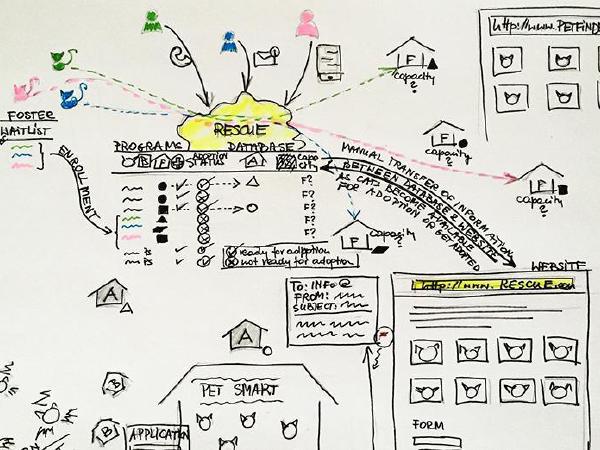 http://www.PETFINDE
F
capacity
?
FOSTER
WAITLIST
RESCUE
DATABASE
PROGRAMS
F
capacity
?
ENROLLMENT
B
F
ADOPTION
STATUS
A
CAPA
CITY
MANUAL TRANSFER OF INFORMATION
BETWEEN DATABASE & WEBSITE
AS CATS BECOME AVAILABLE
FOR ADOPTION OR GET ADOPTED
F
capacity
?
F?
F?
F?
F?
F?
F
capacity
?
ready for adoption
not ready for adoption
WEBSITE
A
TO: INFO@
FROM:
SUBJECT:
http://www.RESCUE.com
A
B
PET SMART
B
APPLICATION
FORM